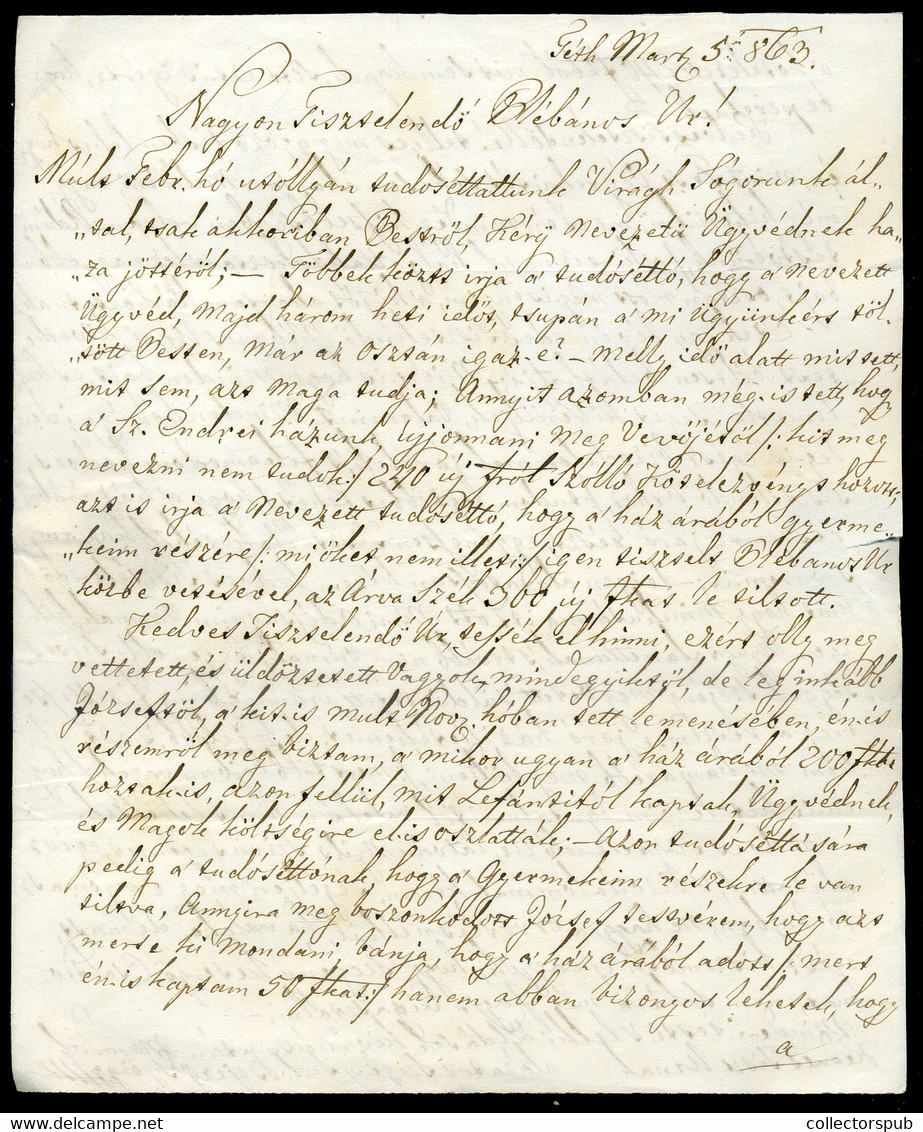 Téth Mart 5n 863.
Nagyon Tisztelendő Plébános Ur!
Múlt Febr. hó utóllyán tudóséttattunk Virágh Sógorunk ál„
„tal, tsak akkoriban Pestről, Kéry Nevezetü Ügyvédnek ha„
„za jöttéről; – Többek közt irja a' tudóséttó, hogy a' Nevezett
Ügyvéd, Majd három heti időt, tsupán a' mi Ügyünkért töl„
„tött Pesten, Már az Osztán igaz-e? – Melly idő alatt mit tett,
mit sem, azt Maga tudja; Annyit azomban még-is tett, hogy
a' Sz. Endrei házunk, újjonnani Meg Vevőjétöl /: kit meg
nevezni nem tudok :/ 2210 új fról Szólló Kötelezvényt hozott,
azt is irja a' Nevezett tudóséttó, hogy a' ház árából gyerme„
„keim részére /: mi őket nem illeti :/ igen tisztelt Plébános Úr
közbe vetésével, az Árva Szék 300 új fkat le tiltott.
Kedves Tisztelendő Ur, tessék el hinni, ezért olly meg
vettetett, és üldöztetett Vagyok, mindegyiktöl, de leg inkább
Józseftöl, a' kit-is mult Nov. hóban tett lemenésében, én-is
részemről meg biztam, a' mikor ugyan a' ház árából 200 fkat
hoztak-is, azon fellül, mit Lefántitól kaptak, Ügyvédnek,
és Magok költségire el-is oszlatták; – Azon tudóséttására
pedig a' tudóséttónak, hogy a' Gyermekeim részekre le van
tiltva, Annyira meg boszonkodott József testvérem, hogy azt
merte ki Mondani, bánja, hogy a' ház árából adott /: mert
én-is kaptam 50 fkat :/ hanem abban bizonyos lehetek, hogy
a
collectorspub